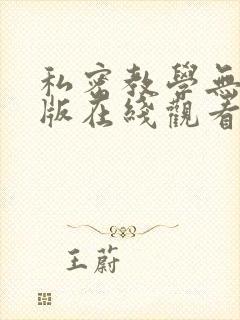 私密教學無
版在綫觀看
王蔚